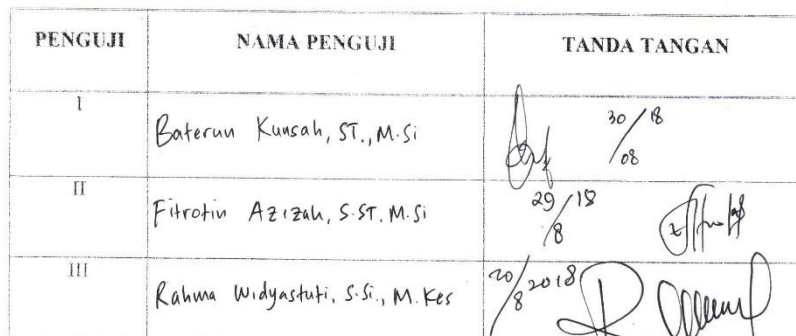 PENGUJI NAMA PENGUJI TANDA TANGAN
I Baterun Kunsah, ST., M.Si 30/18/08
II Fitrotin Azizah, S.ST. M.Si 29/18/8
III Rahma Widyastuti, S.Si., M.Kes 20/8 2018